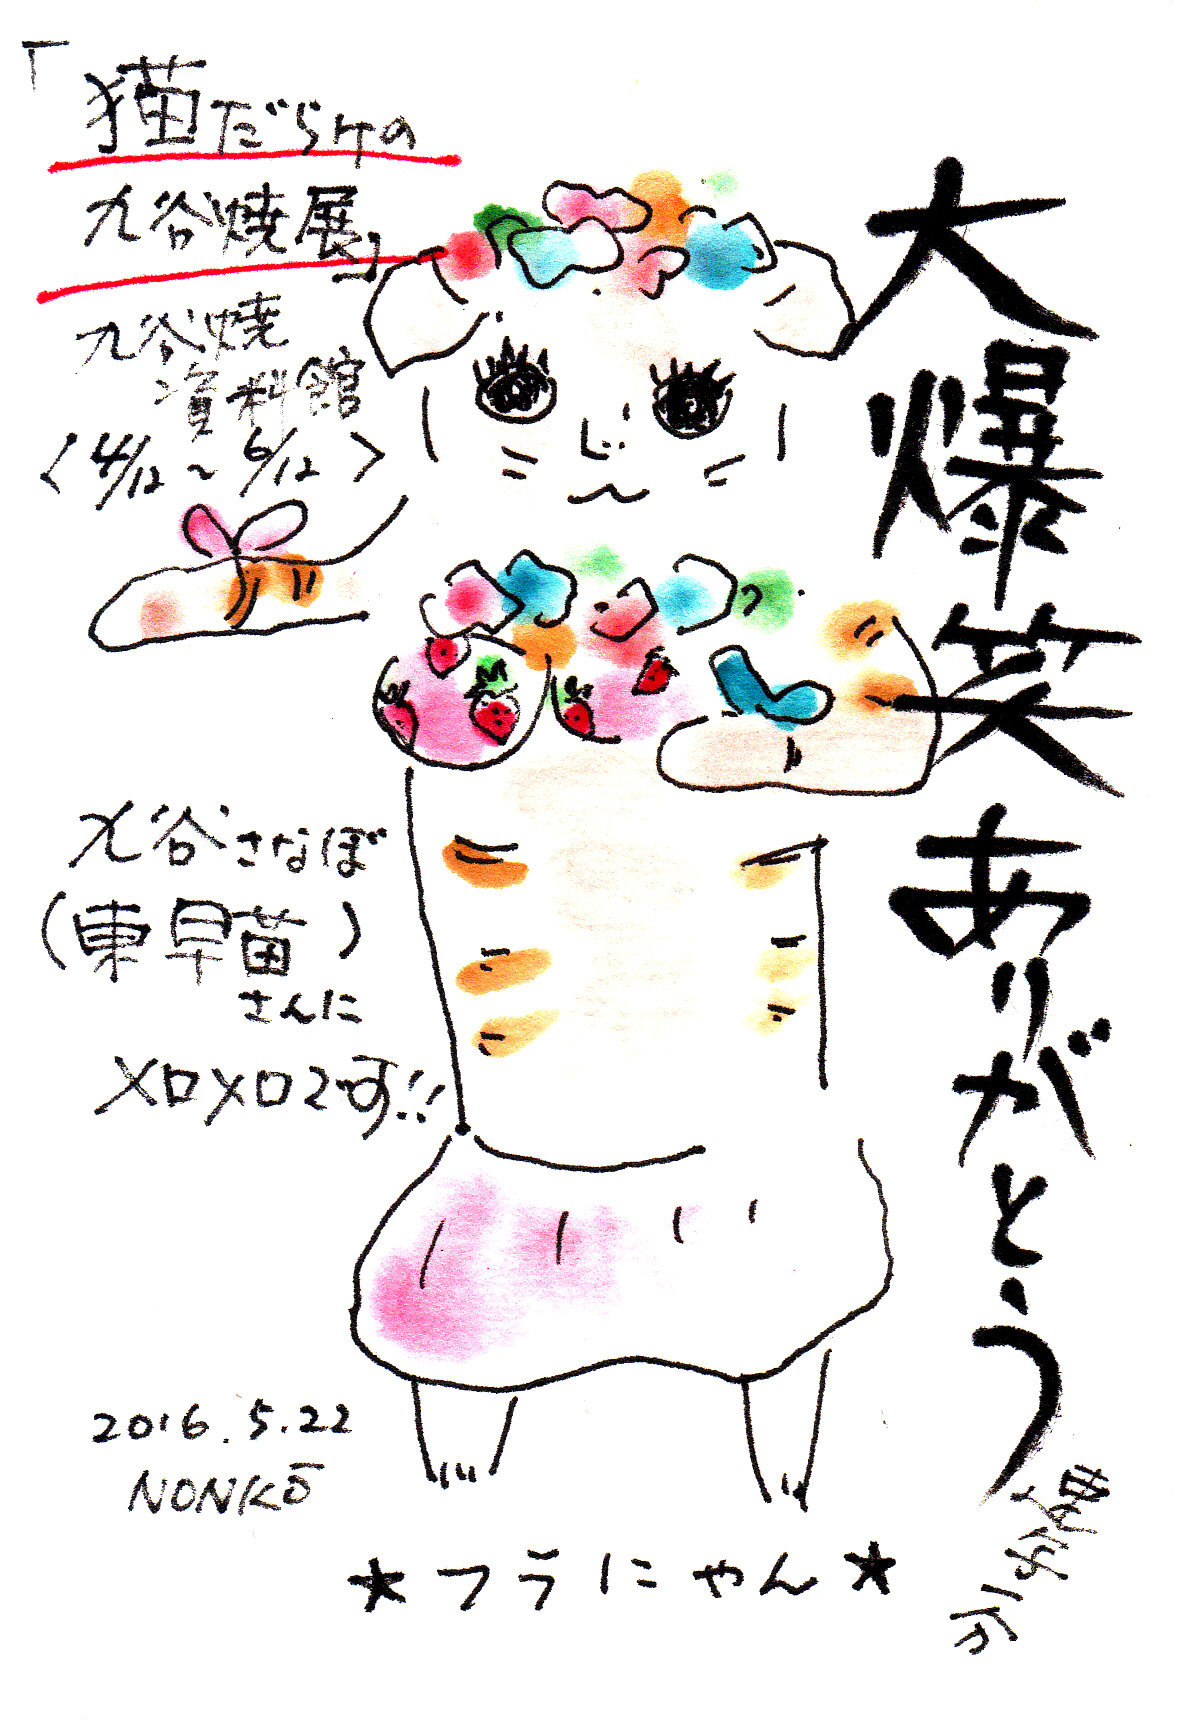 「猫だらけの
九谷焼展」
九谷焼
資料館
〈4/12～6/12〉
大爆笑ありがとう
九谷さなぼ
(東早苗)
さんに
メロメロです!!
2016.5.22
NONKO
★フラにゃん★